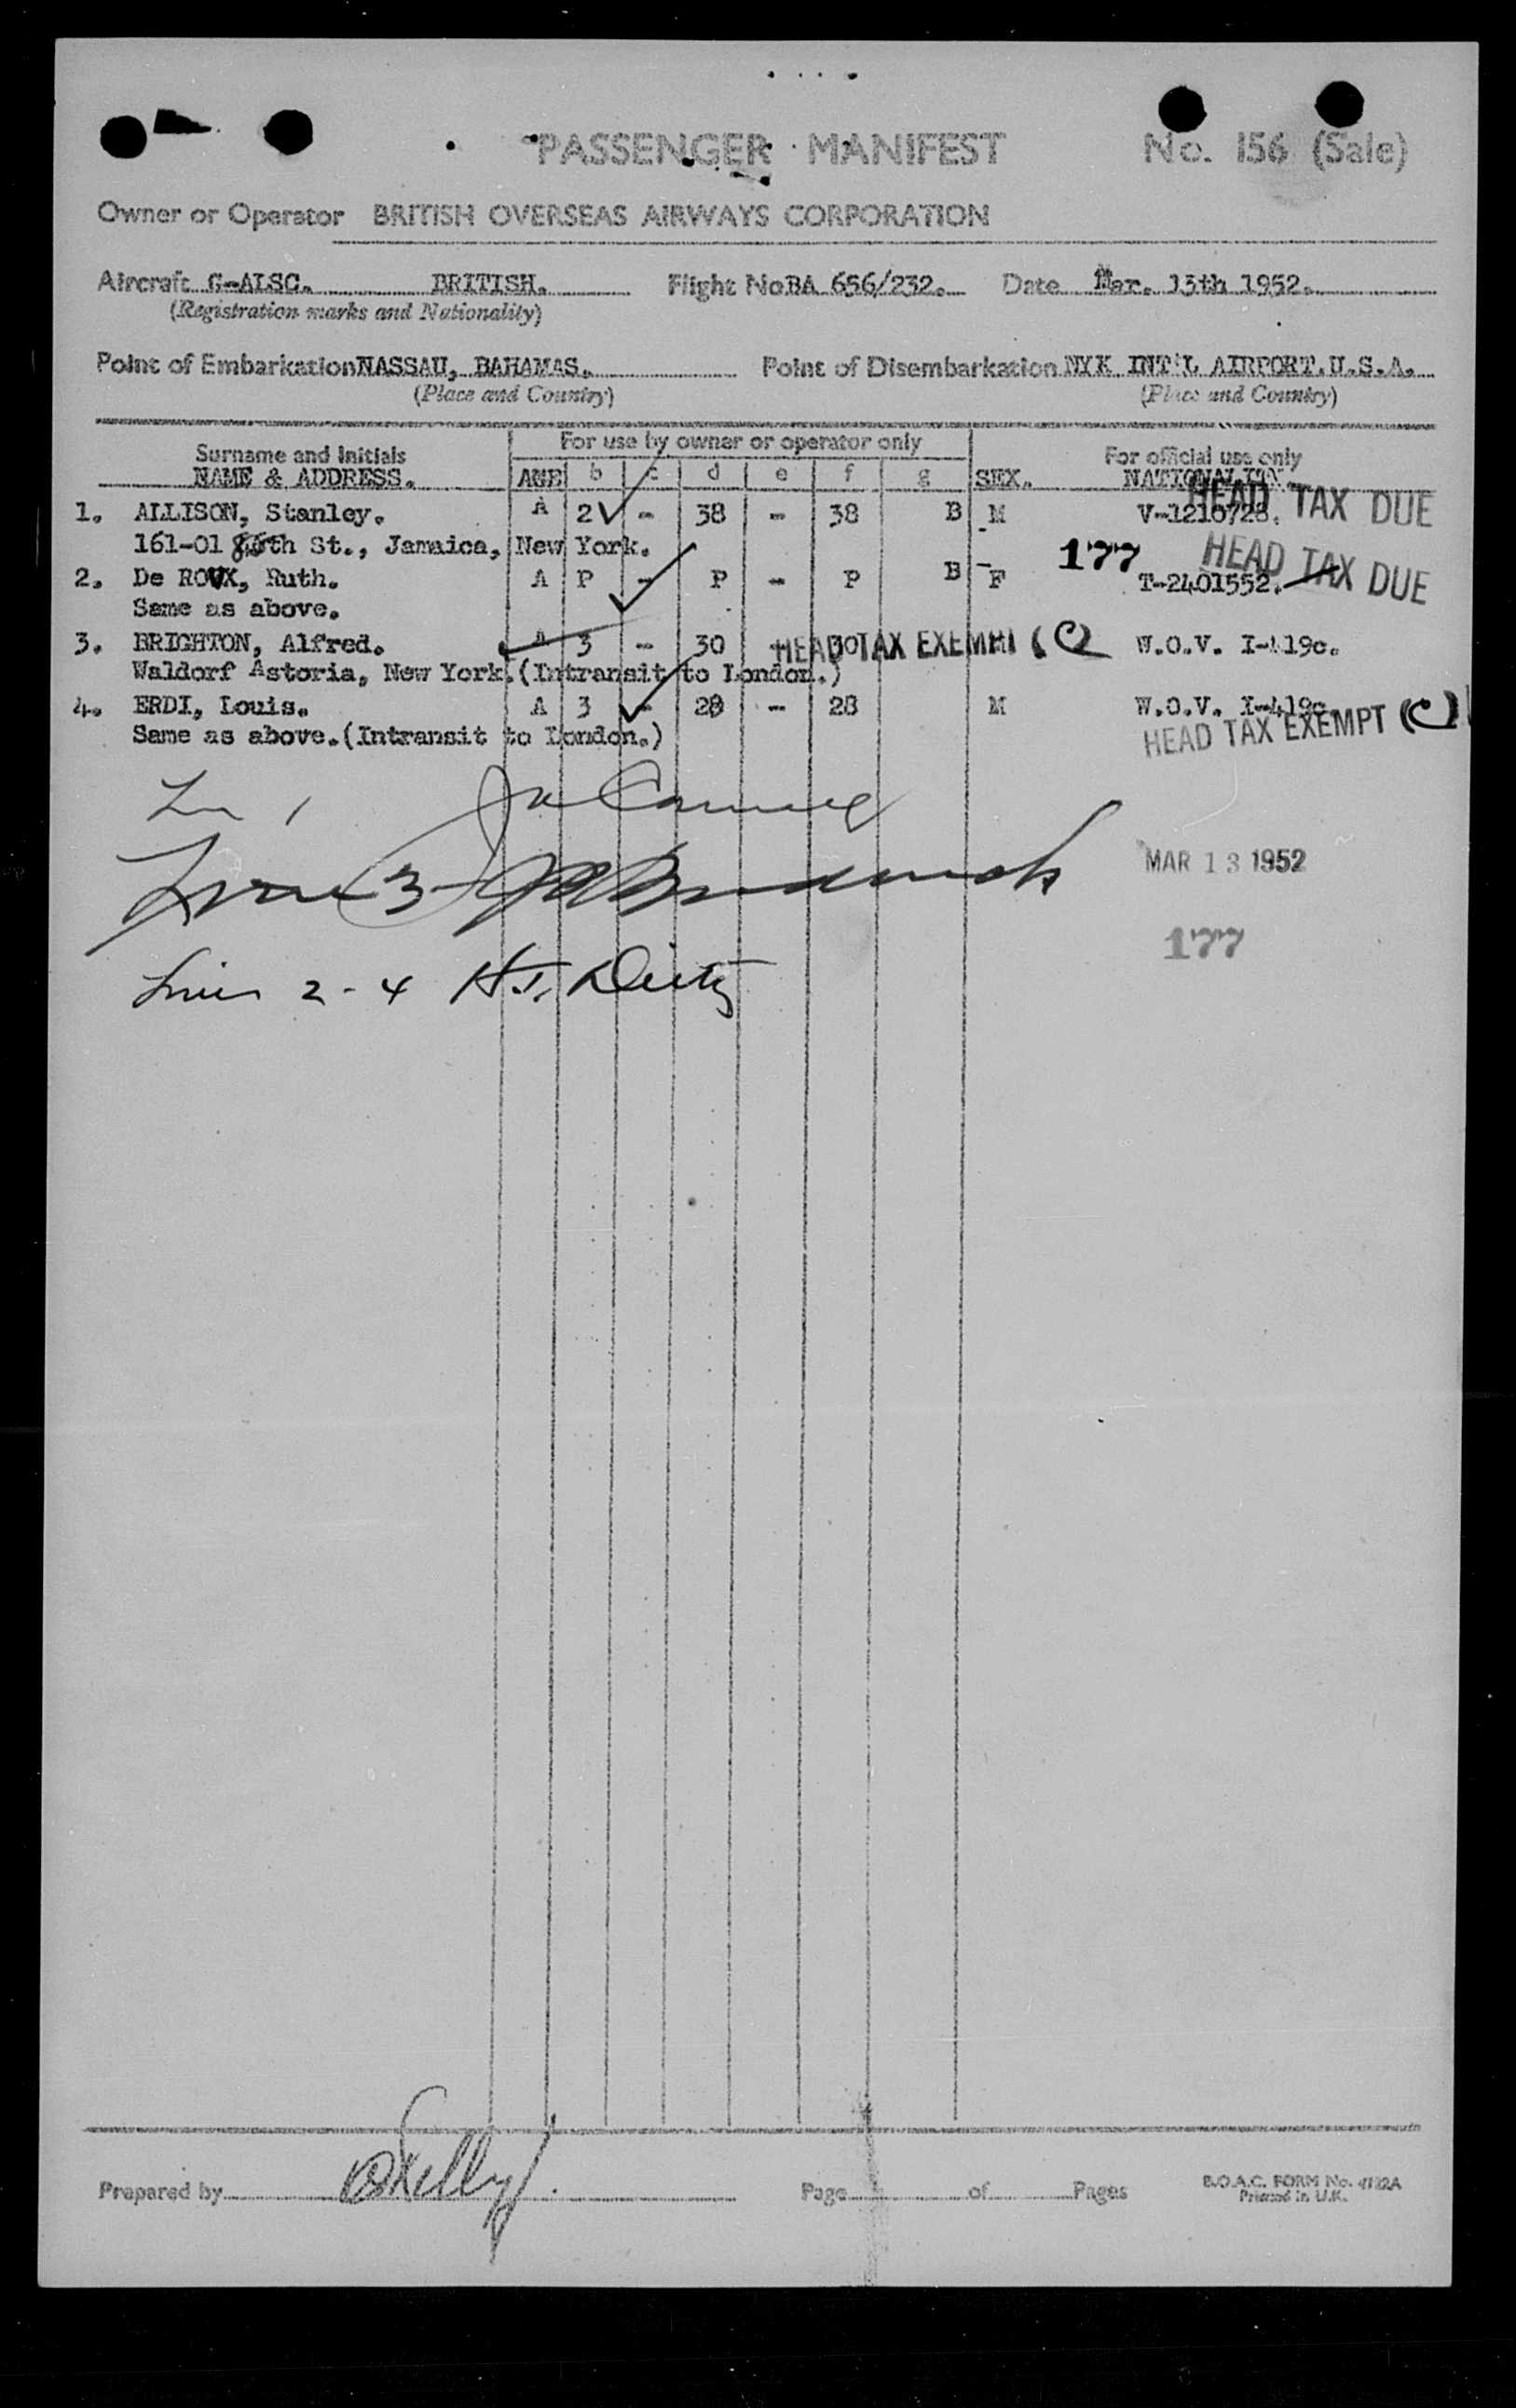 PASSENGER MANIFEST No. 156 (Sale)
Owner or Operator BRITISH OVERSEAS AIRWAYS CORPORATION
Aircraft G-ALSC. BRITISH. Flight No BA 656/232. Date Mar. 13th 1952.
(Registration marks and Nationality)
Point of Embarkation NASSAU, BAHAMAS. Point of Disembarkation NYK INT'L AIRPORT.U.S.A.
(Place and Country) (Place and Country)
For use by owner or operator only
Surname and initials For official use only
NAME & ADDRESS. AGE b c d e f g SEX. NATIONALITY.
HEAD TAX DUE
1. ALLISON, Stanley. A 2 - 38 - 38 B M V-1210728.
161-01 St., Jamaica, New York.
177 HEAD TAX DUE
2. De ROUX, Ruth. A P - P - P B F T-2401552.
Same as above.
3. BRIGHTON, Alfred. A 3 - 30 - 30 HEAD TAX EXEMPT (C) W.O.V. I-419c.
Waldorf Astoria, New York.(Intransit to London.)
4. ERDI, Louis. A 3 - 28 - 28 M W.O.V. I-419c.
Same as above.(Intransit to London.) HEAD TAX EXEMPT (C)
MAR 13 1952
177
Lines 2-4 H.J. Dietz
Prepared by Page of Pages
B.O.A.C. FORM No. 4122A
Printed in U.K.